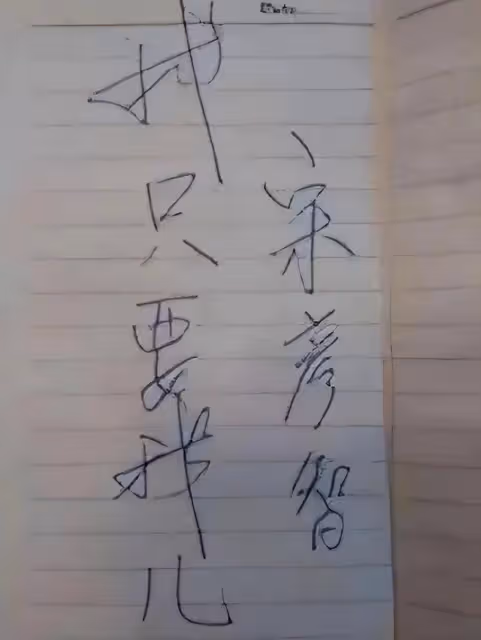 我只要我儿
宋智